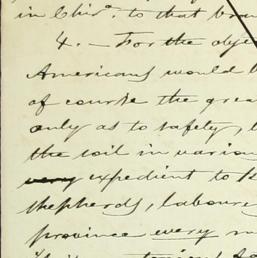 in Chief. to that
4. — For the obje
Americans would b
of course the grea
only as to safety, b
the soil in variou
very expedient to
shepherds, laboure
province every m